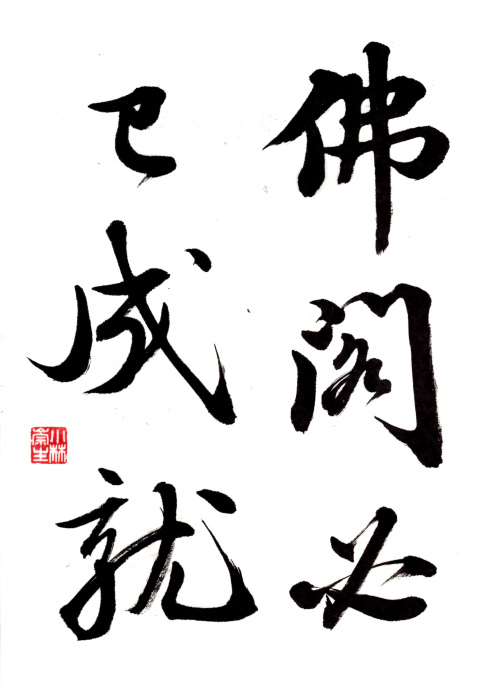 佛閣必
已成就
小林